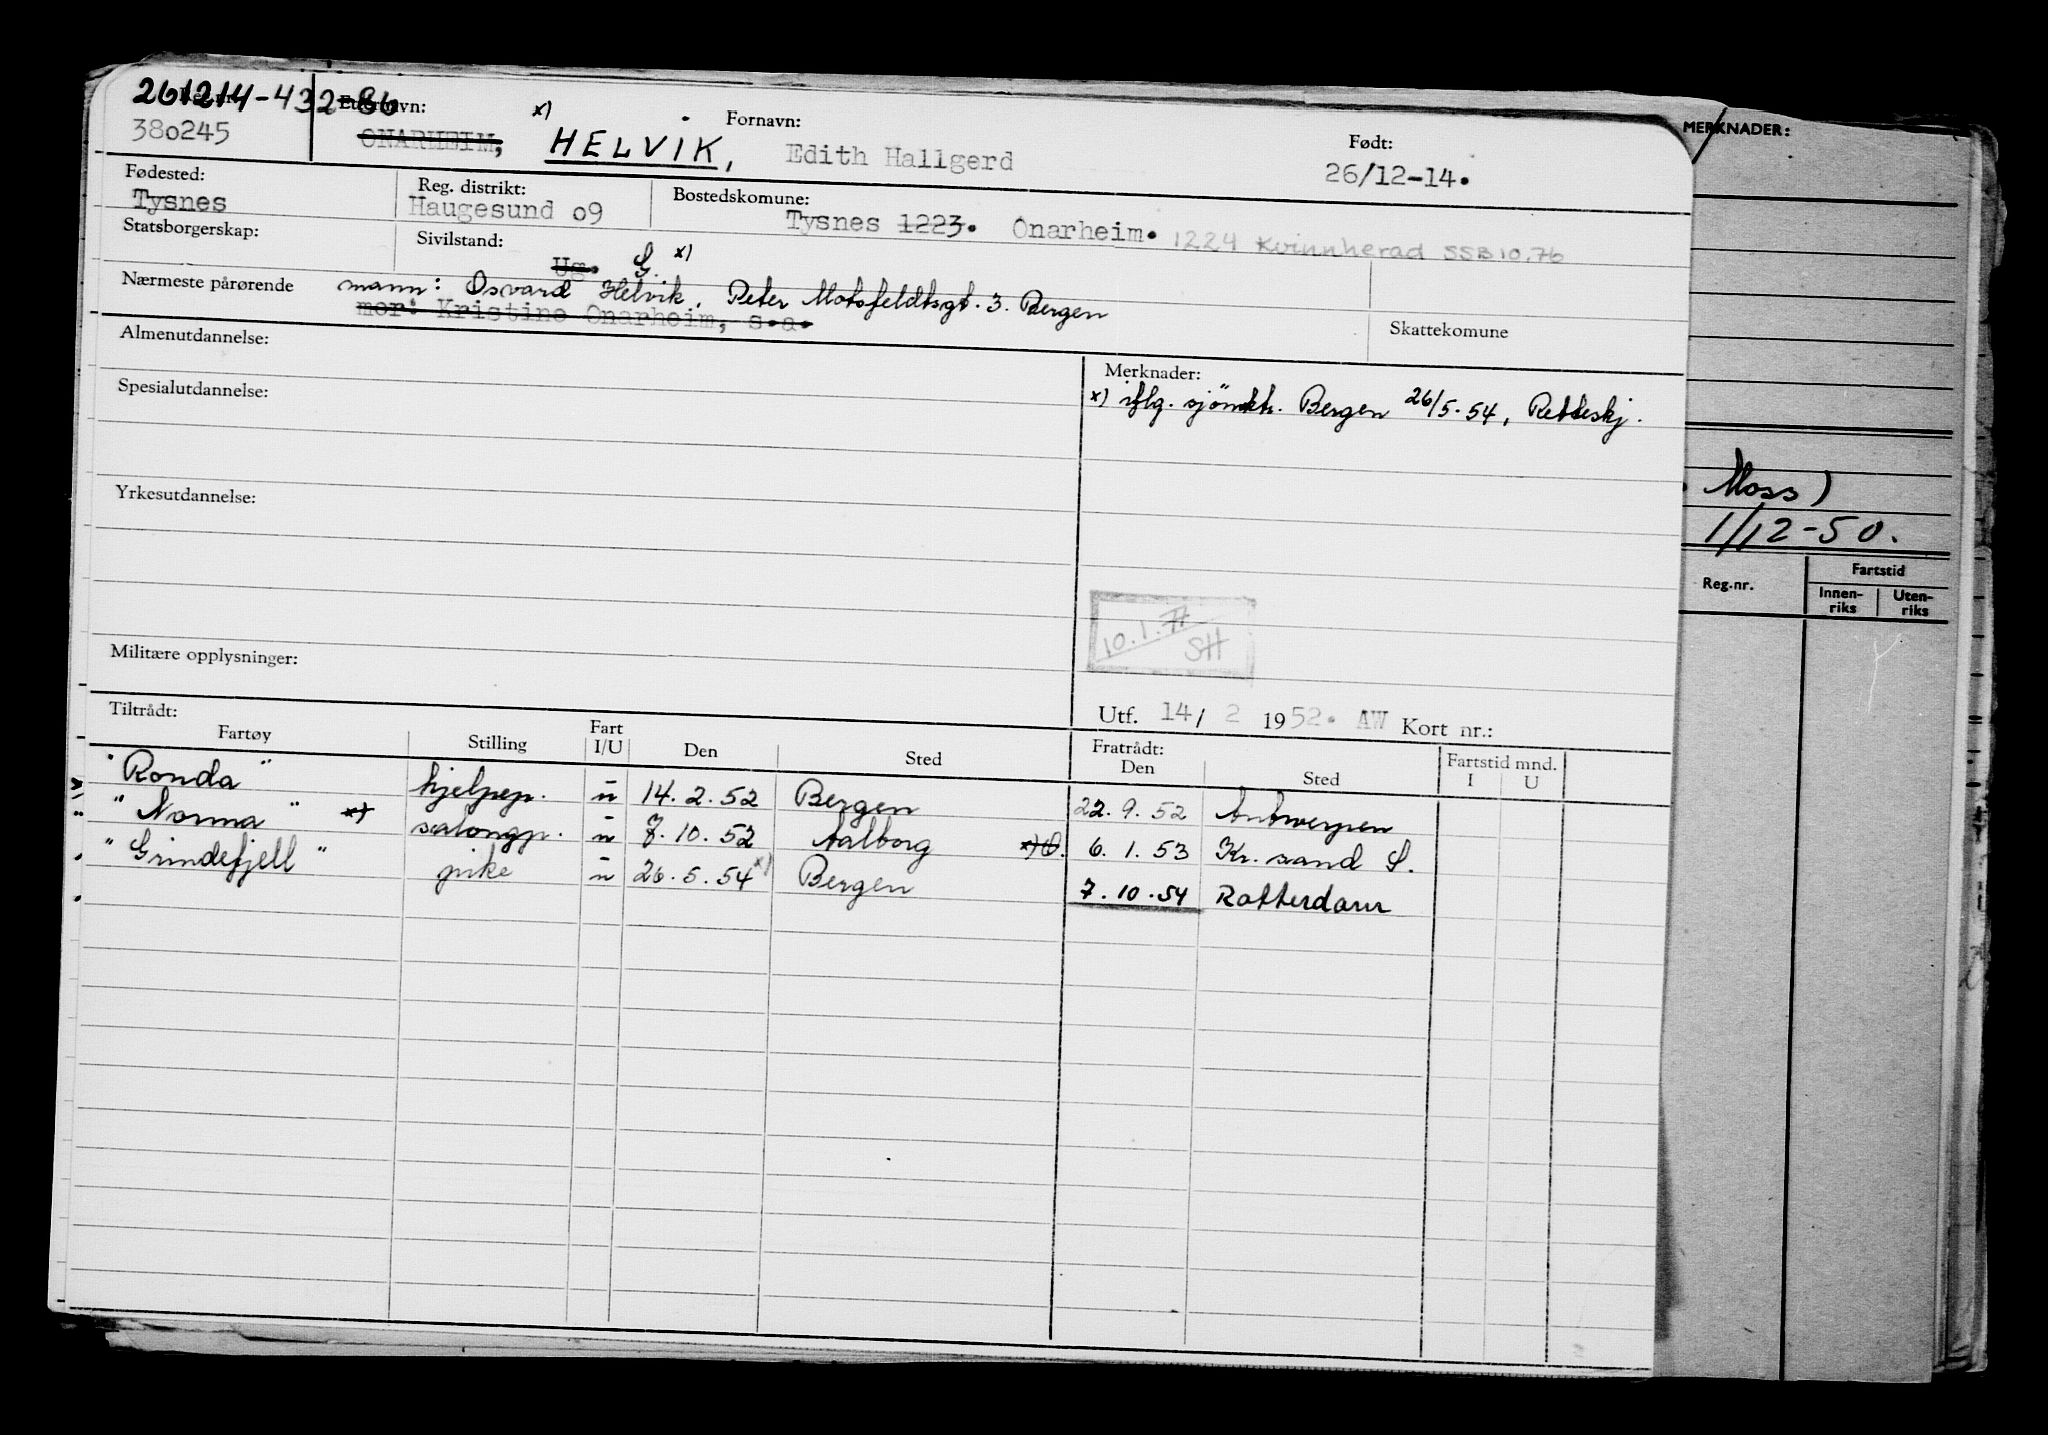 261214-432-86
Reg. nr. Etternavn: x) Fornavn: Født:
380245 ONARHEIM, HELVIK, Edith Hallgerd 26/12-14.
Fødested: Reg. distrikt: Bostedskomune:
Tysnes Haugesund 09 Tysnes 1223. Onarheim. 1224 Kvinnherad SSB 10.76
Statsborgerskap: Sivilstand: Ug. G. x)
Nærmeste pårørende mann: Osvard Helvik, Peter Motsfeldtsgt. 3. Bergen
mor: Kristine Onarheim, s.a.
Skattekomune
Almenutdannelse:
Merknader:
x) iflg. sjömktr. Bergen 26/5-54, Retteskj.
Spesialutdannelse:
Yrkesutdannelse:
10.1.77
SH
Militære opplysninger:
Utf. 14/ 2 1952. AW Kort nr.:
Tiltrådt: Fratrådt: Fartstid mnd.
Fartøy Stilling Fart I/U Den Sted Den Sted I U
"Ronda" hjelpep. u 14.2.52 Bergen 22.9.52 Antwerpen
"Norma" x) salongp. u 7.10.52 Aalborg x) O. 6.1.53 Kr. sand S.
"Grindefjell" pike u 26.5.54 x) Bergen 7.10.54 Rotterdam
MERKNADER:
Moss)
1/12-50.
Reg.nr. Fartstid
Innen-riks Uten-riks